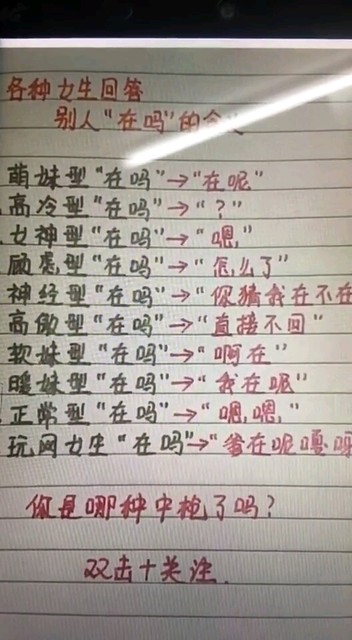 各种女生回答
别人“在吗”的含义
萌妹型“在吗”→“在呢”
高冷型“在吗”→“?”
女神型“在吗”→“嗯,”
顾虑型“在吗”→“怎么了”
神经型“在吗”→“你猜我在不在
高傲型“在吗”→“直接不回”
软妹型“在吗”→“啊在”
暖妹型“在吗”→“我在呢”
正常型“在吗”→“嗯,嗯,”
玩网女生“在吗”→“爹在呢嘎
你是哪种中枪了吗?
双击+关注.